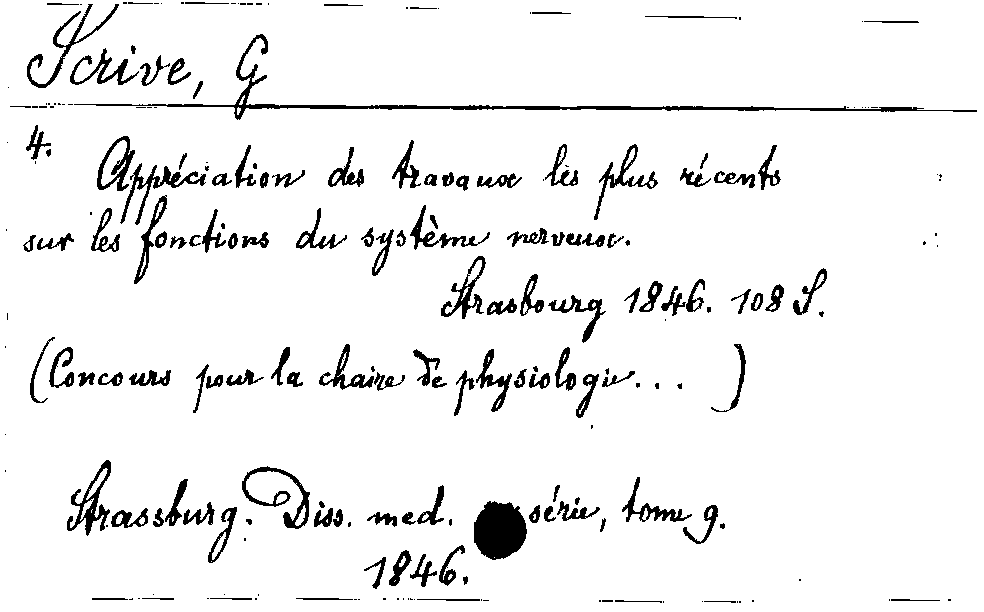 Scrive, G
4.
Appréciation des travaux les plus récents
sur les fonctions du système nerveux.
Strasbourg 1846. 108 S.
(Concours pour la chaire de physiologie... )
Strassburg. Diss. med. série, tome 9.
1846.